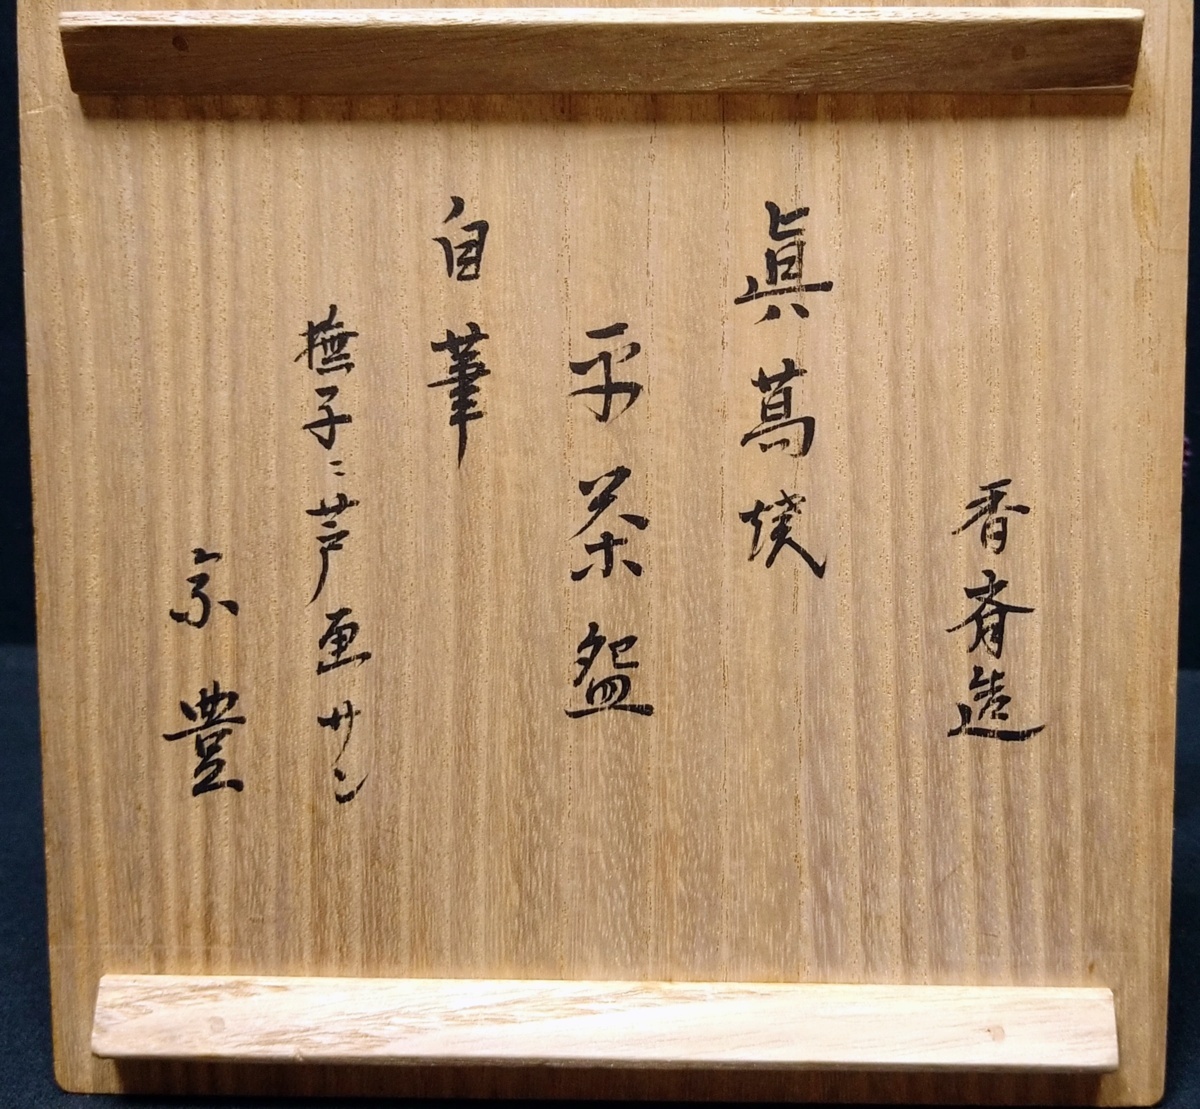 香斎造
眞葛焼
平茶盌
自筆
撫子ニ芦画サン
宗豊